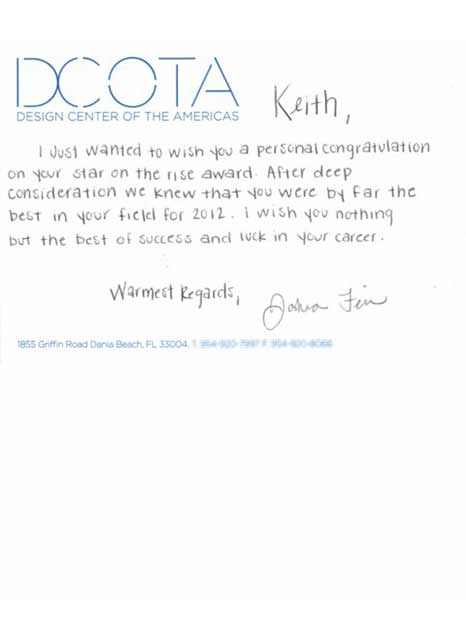 DCOTA
DESIGN CENTER OF THE AMERICAS
Keith,
I Just wanted to wish you a personal congratulation
on your star on the rise award. After deep
consideration we knew that you were by far the
best in your field for 2012. I wish you nothing
but the best of success and luck in your career.
Warmest Regards,
1855 Griffin Road Dania Beach, FL 33004, T F